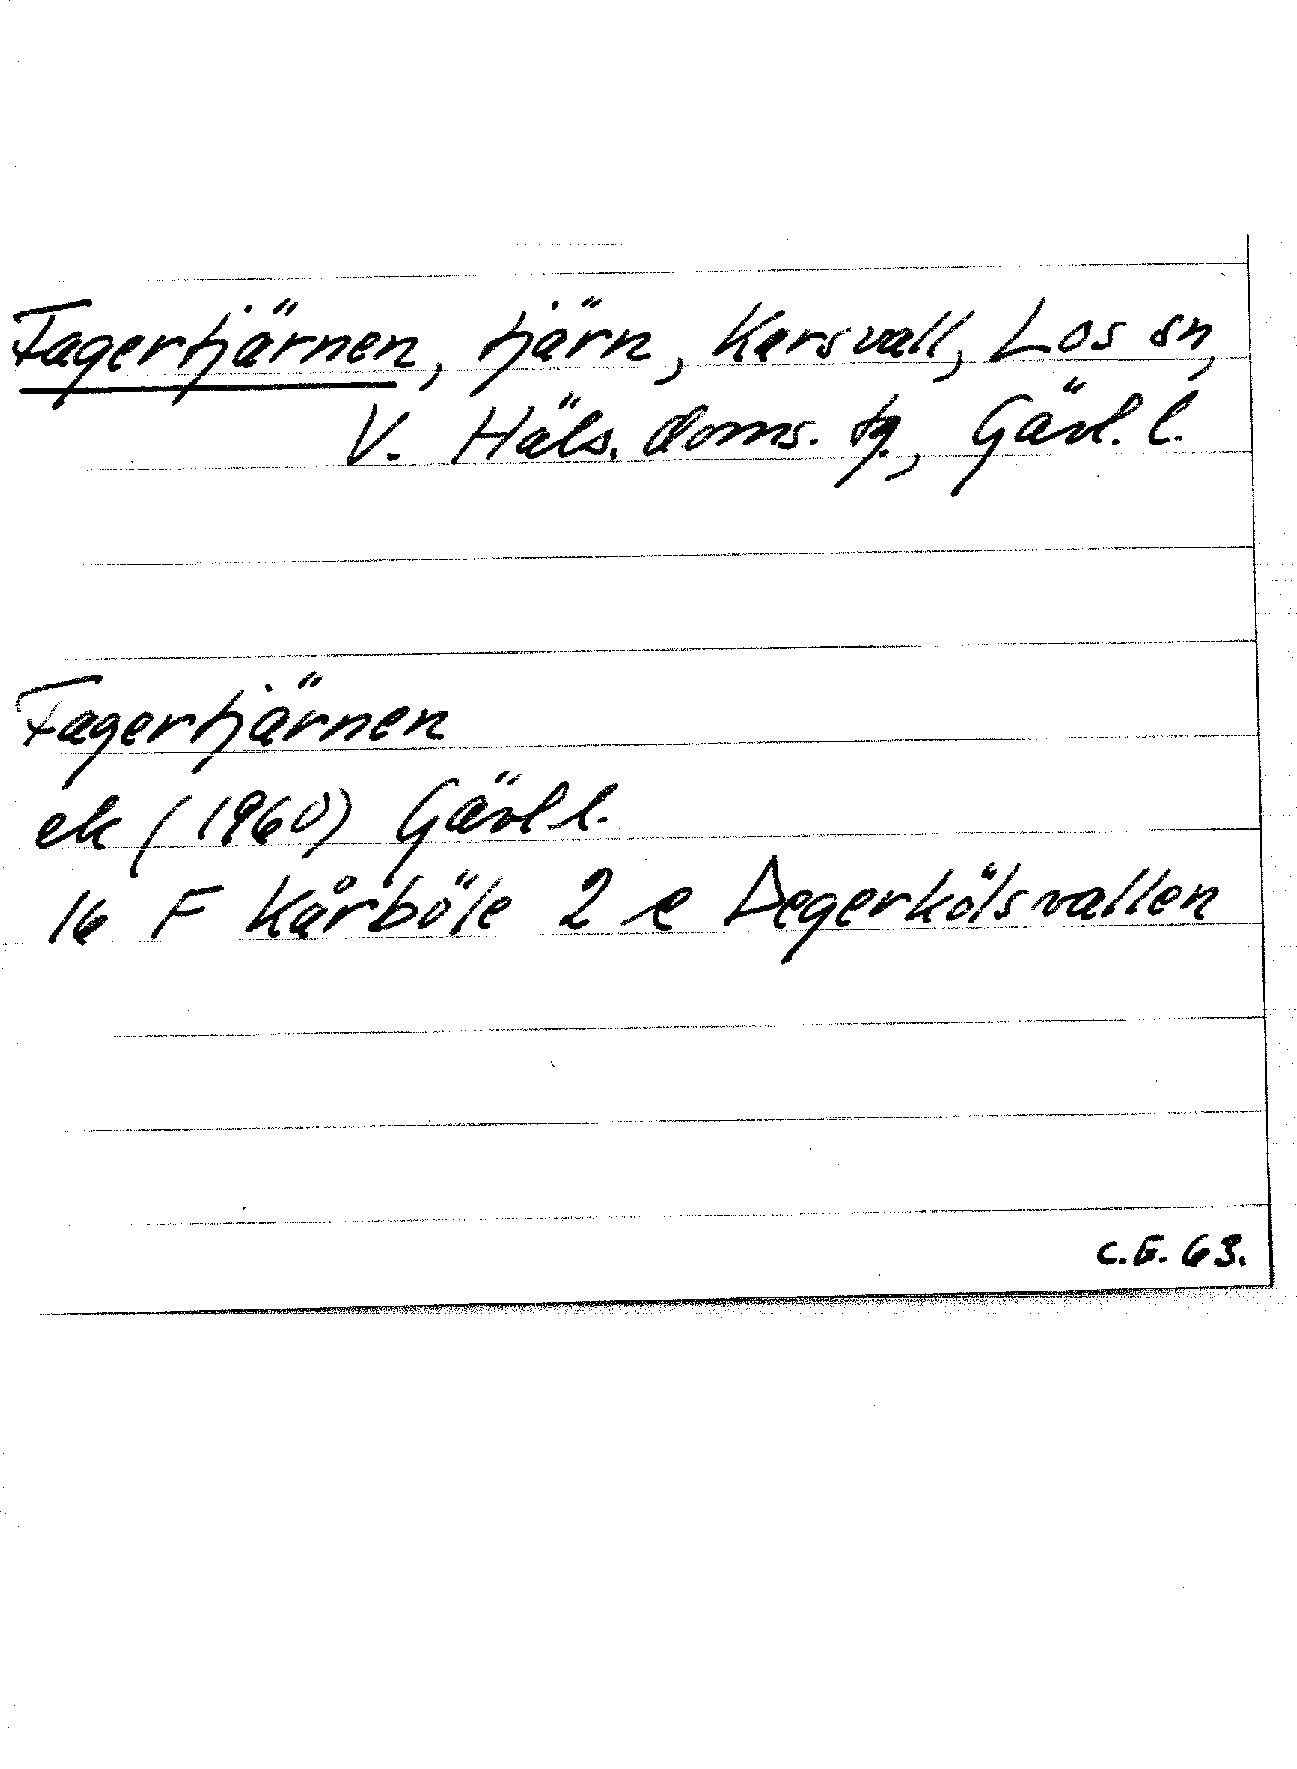 Fagertjärnen, tjärn, Karsvall, Los sn,
V. Häls. doms. tg., Gävl. l.
Fagertjärnen
ek (1960) Gävl l.
16 F Kårböle 2 e Degerkölsvallen
C.E. 63.